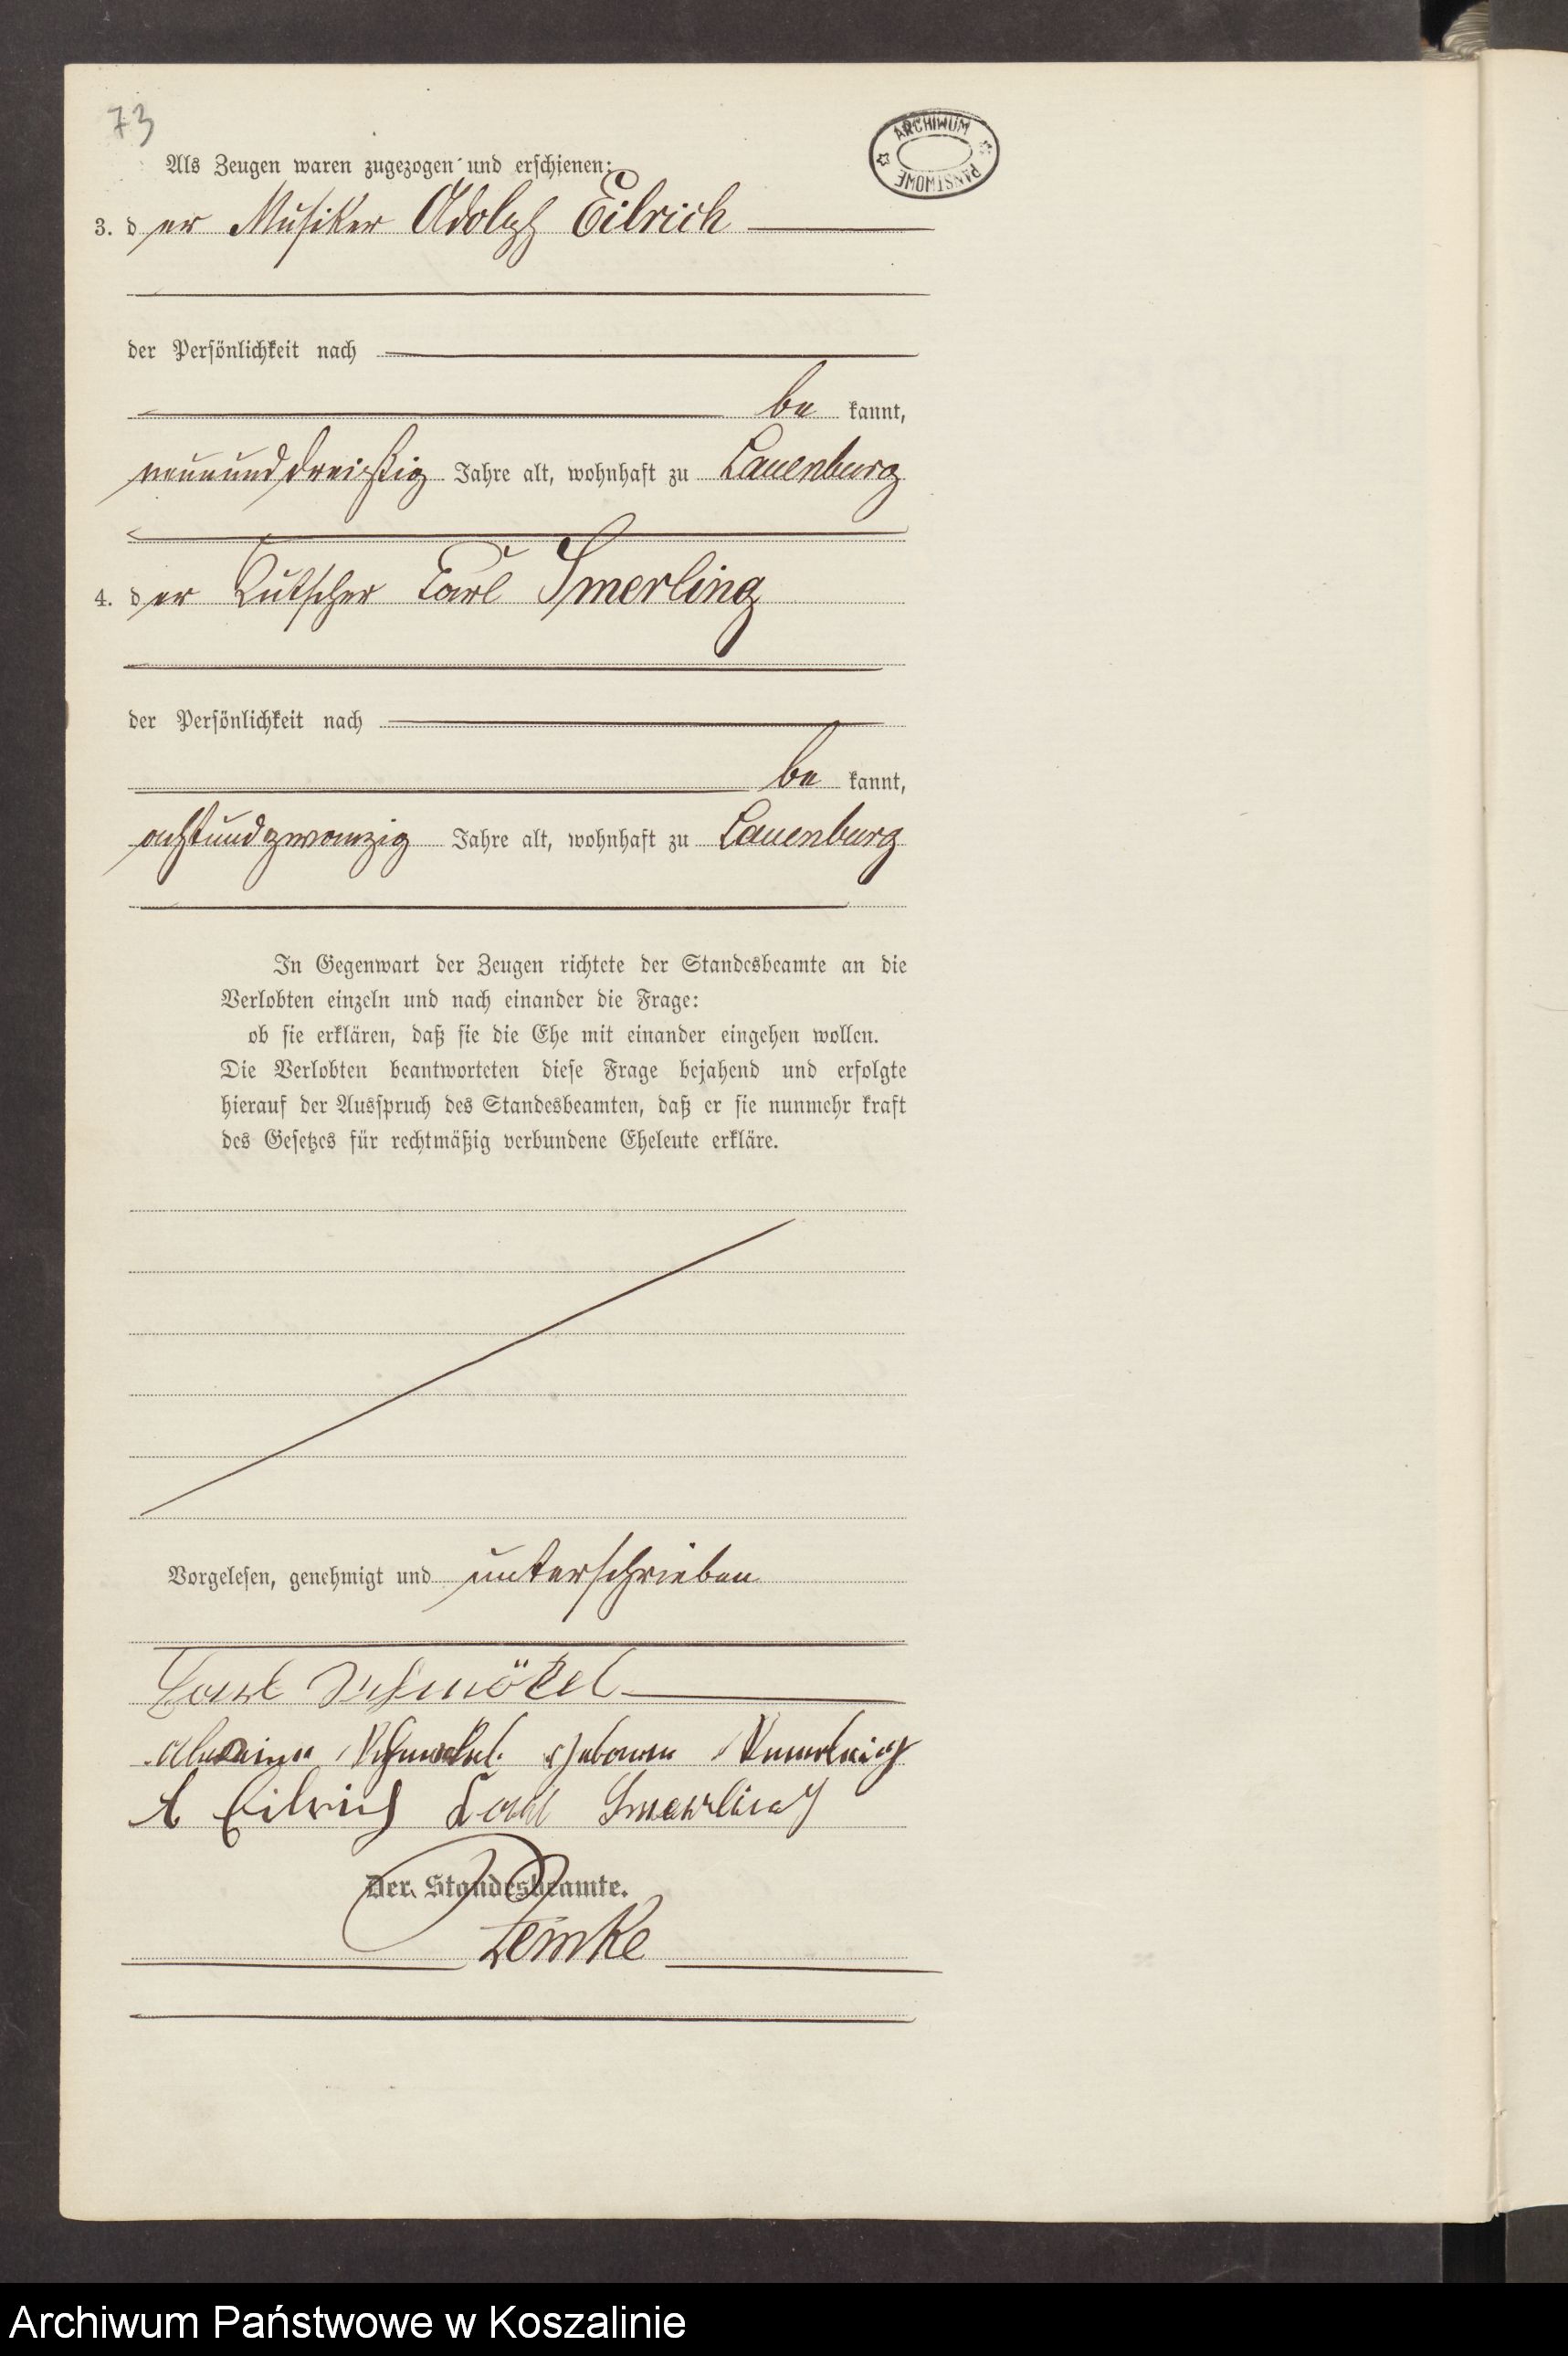 73
ARCHIWUM PAŃSTWOWE
Als Zeugen waren zugezogen und erschienen:
3. der Musiker Adolph Eilrich
der Persönlichkeit nach
be kannt,
neununddreißig Jahre alt, wohnhaft zu Lauenburg
4. der Kutscher Carl Smerling
der Persönlichkeit nach
be kannt,
achtundzwanzig Jahre alt, wohnhaft zu Lauenburg
In Gegenwart der Zeugen richtete der Standesbeamte an die
Verlobten einzeln und nach einander die Frage:
ob sie erklären, daß sie die Ehe mit einander eingehen wollen.
Die Verlobten beantworteten diese Frage bejahend und erfolgte
hierauf der Ausspruch des Standesbeamten, daß er sie nunmehr kraft
des Gesetzes für rechtmäßig verbundene Eheleute erkläre.
Vorgelesen, genehmigt und unterschrieben
Schmökel
Schmökel geborene Smerling
A Eilrich Carl Smerling
Der Standesbeamte.
Lemke
Archiwum Państwowe w Koszalinie